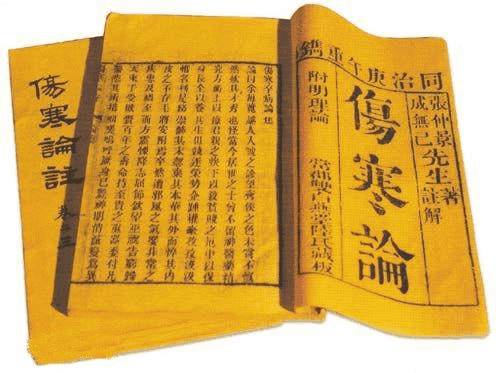 同治庚午重鐫
張仲景
成無己
先生
著
註解
傷寒論
附明理論 常郡雙白燕堂陸氏藏板
傷寒卒病論集
論曰余每覽越人入虢之診望齊侯之色未嘗不慨
然歎其才秀也怪當今居世之士曾不留神醫藥精
究方術上以療君親之疾下以救貧賤之厄中以保
身長全以養其生但競逐榮勢企踵權豪孜孜汲汲
惟名利是務崇飾其末忽棄其本華其外而悴其內
皮之不存毛將安附焉卒然遭邪風之氣嬰非常之
疾患及禍至而方震慄降志屈節欽望巫祝告窮歸
天束手受敗賫百年之壽命持至貴之重器委付凡
醫恣其所措咄嗟嗚呼厥身已斃神明消滅變為異
傷寒論註 卷二三